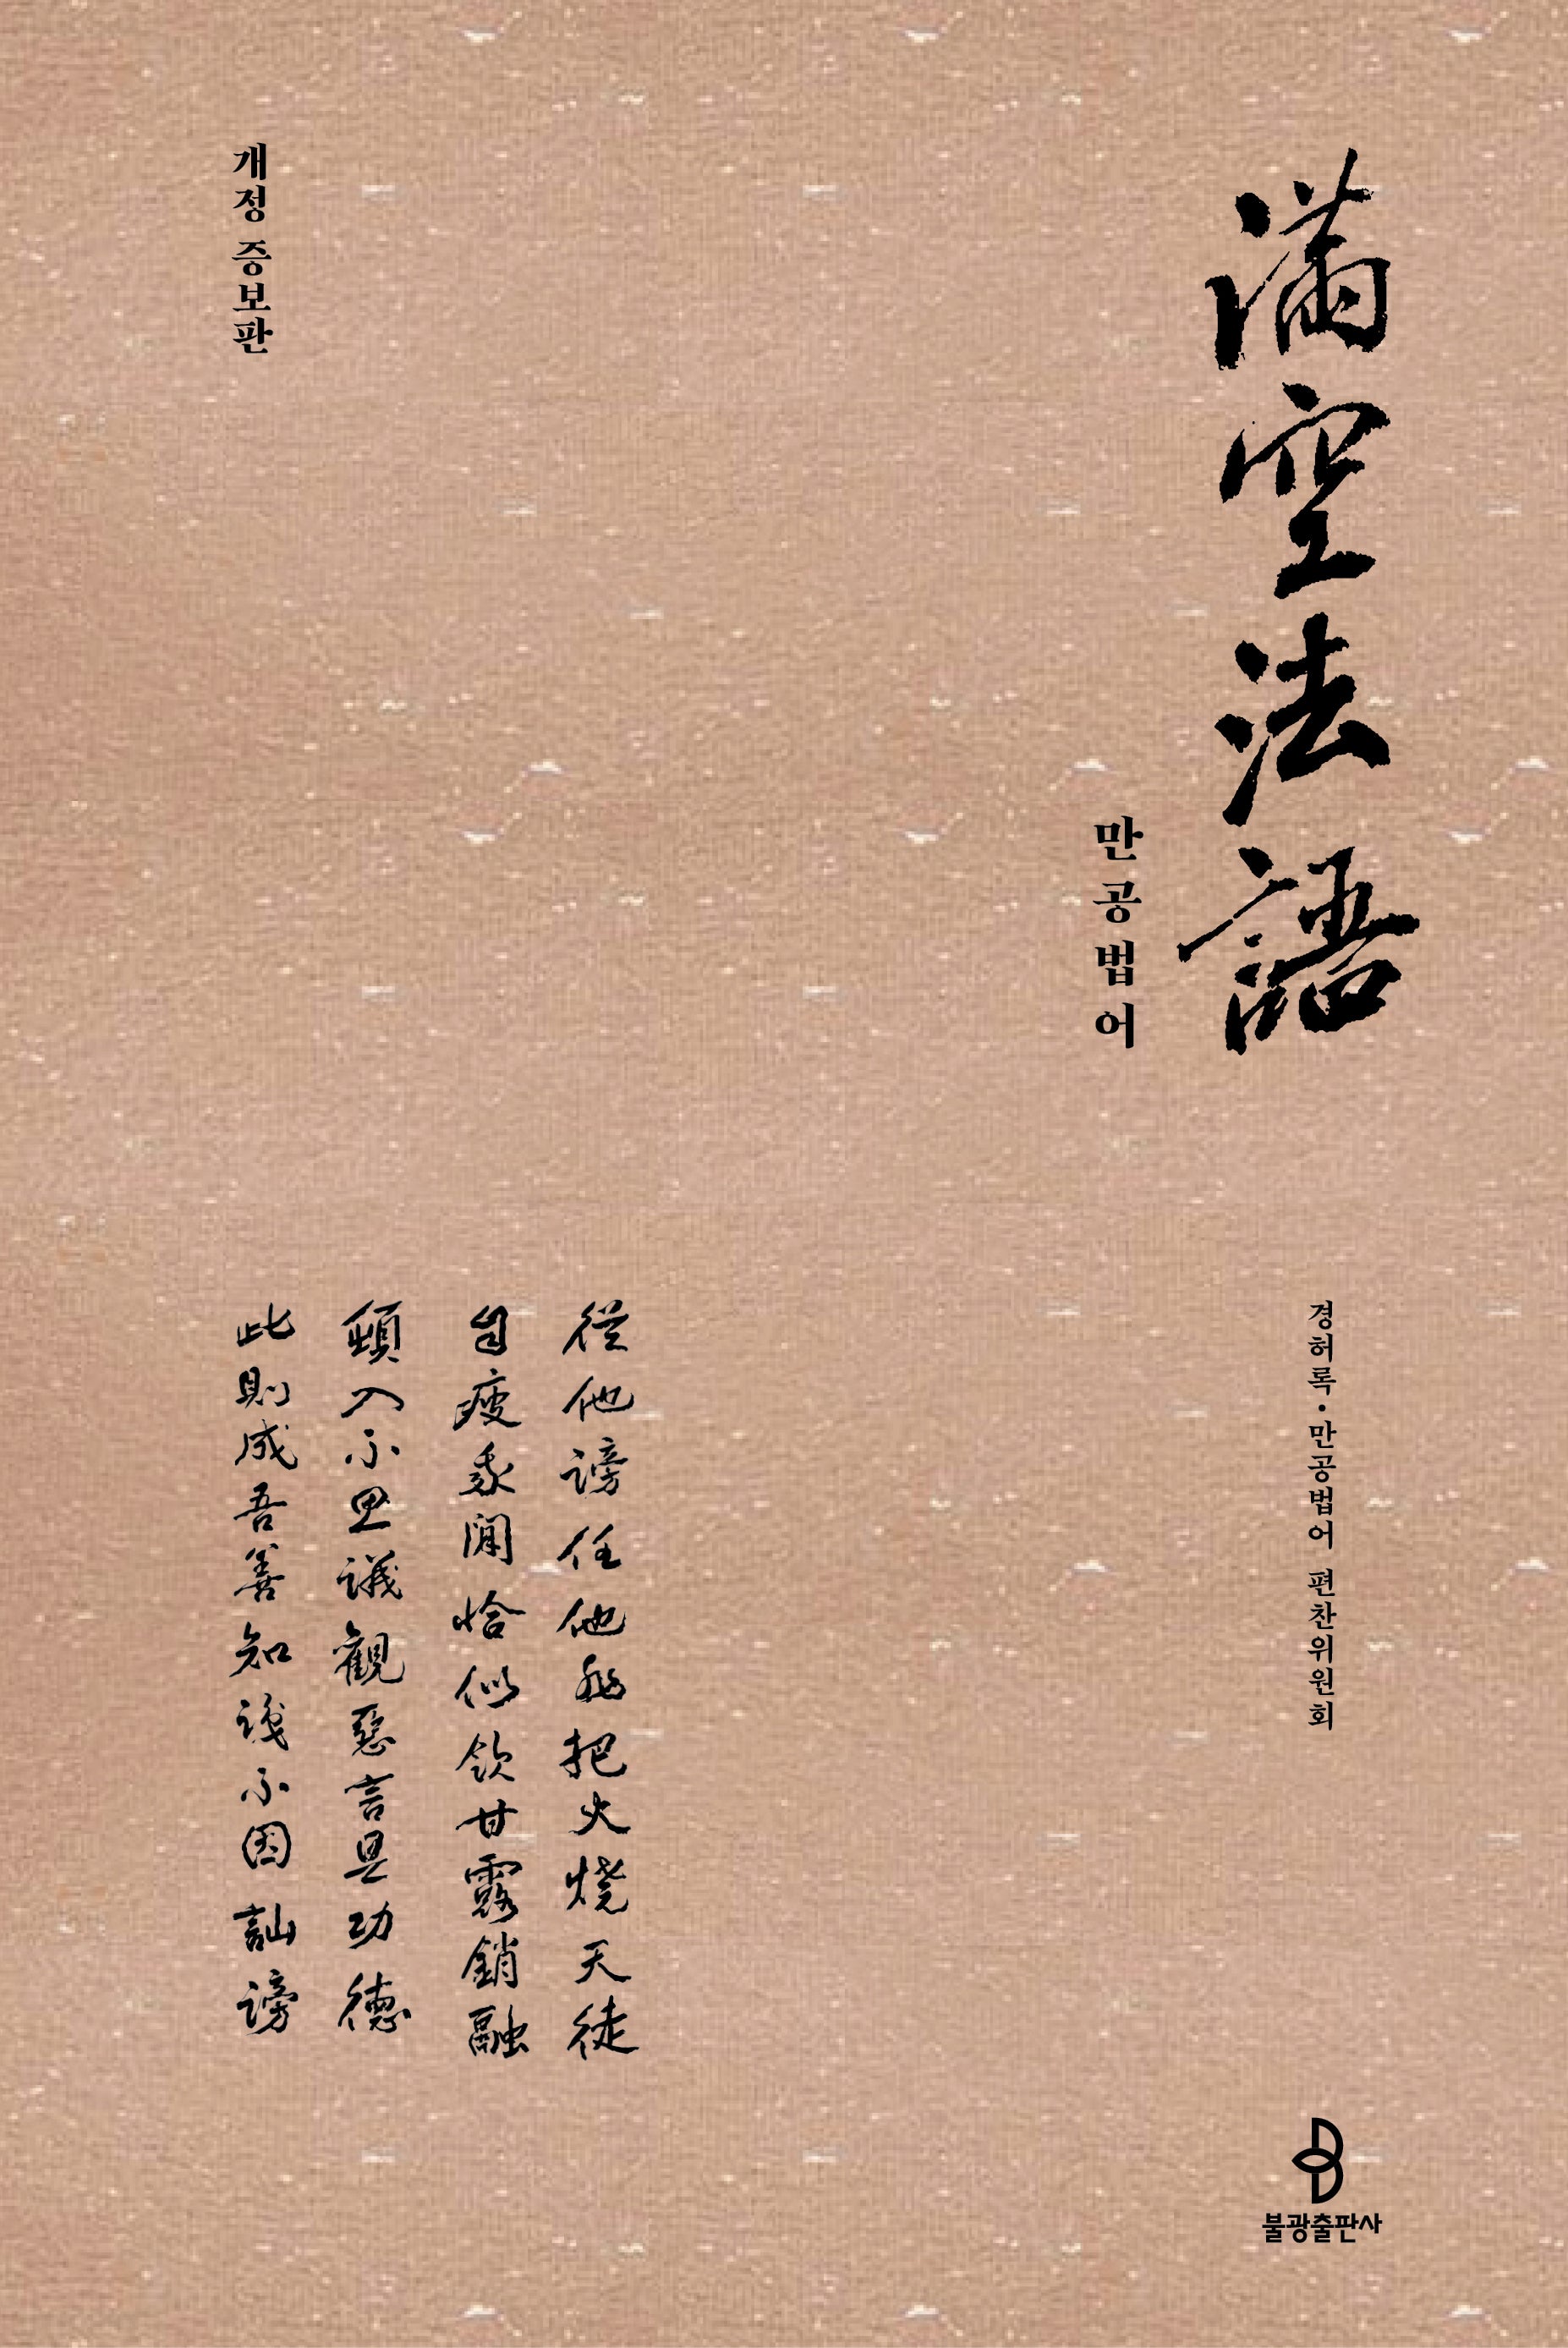 滿空法語
만공법어
경허록·만공법어 편찬위원회
불광출판사
從他謗任他非把火燒天徒
自疲我聞恰似飮甘露銷融
頓入不思議觀惡言是功德
此則成吾善知識不因訕謗
개정 증보판